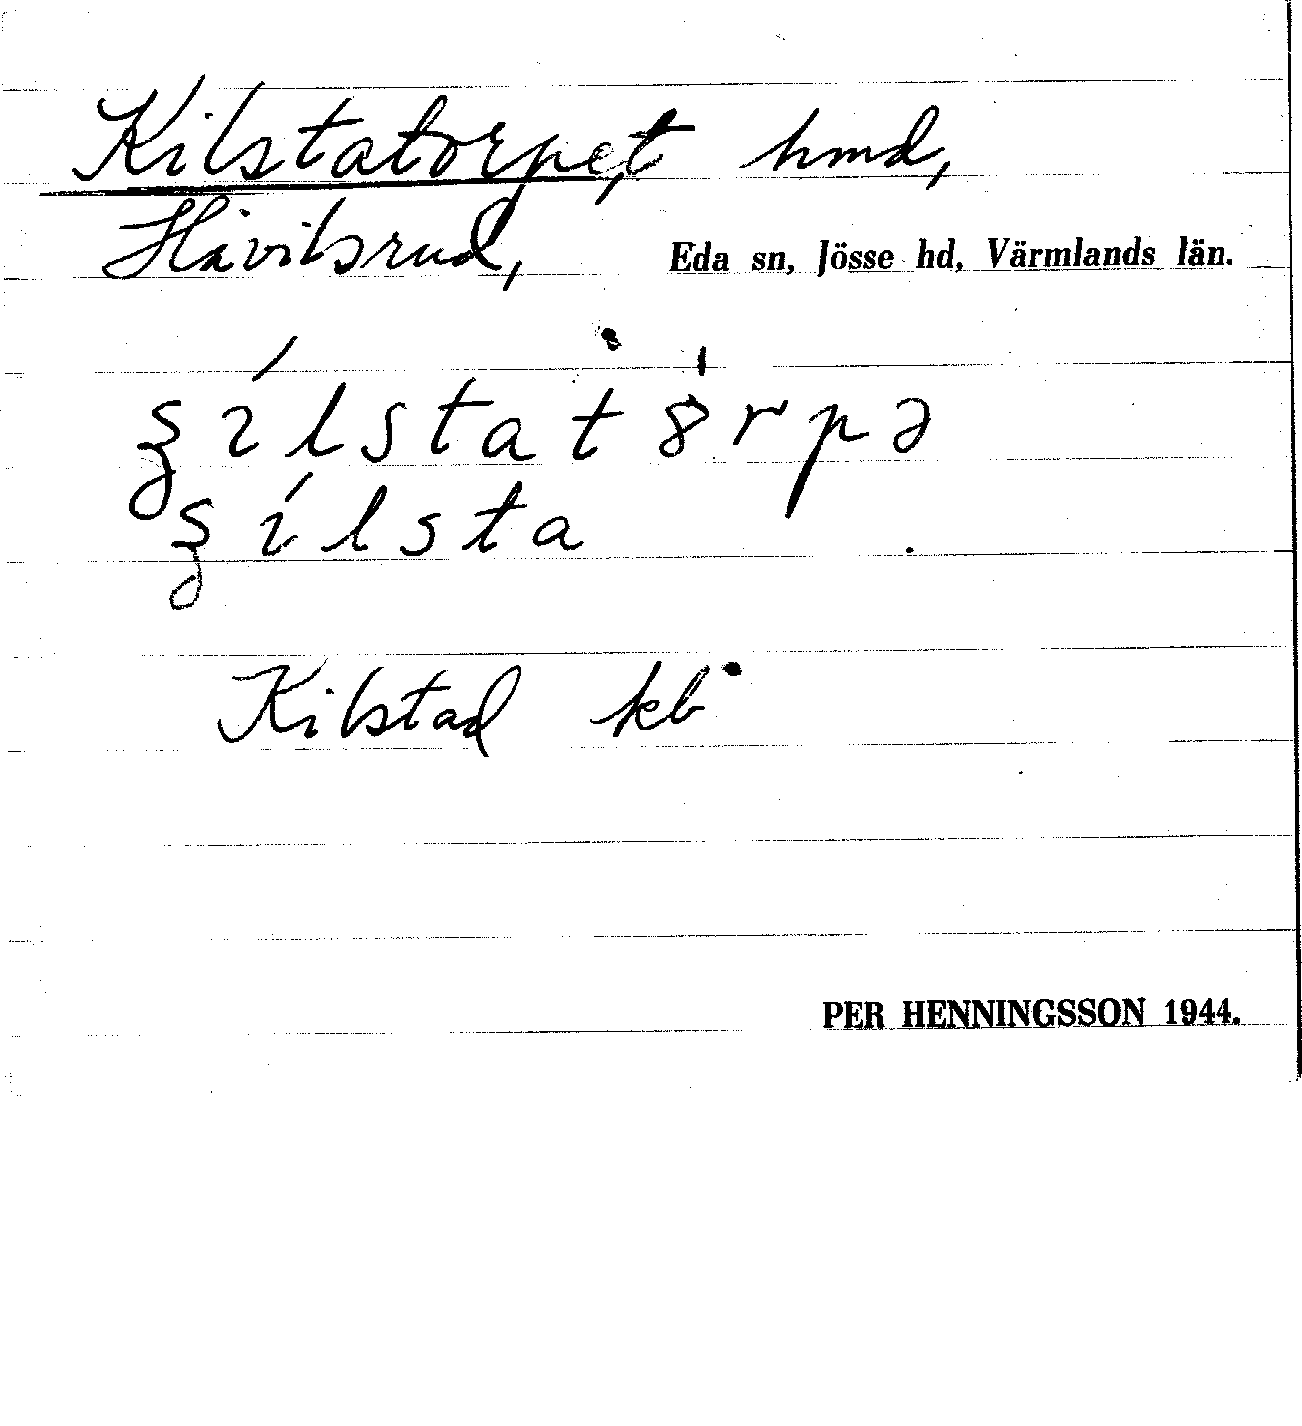 Kilstatorpet hmd,
Håvilsrud, Eda sn, Jösse hd, Värmlands län.
ʂílstatȯ́rpə
ʂílsta
Kilstad kb
PER HENNINGSSON 1944.